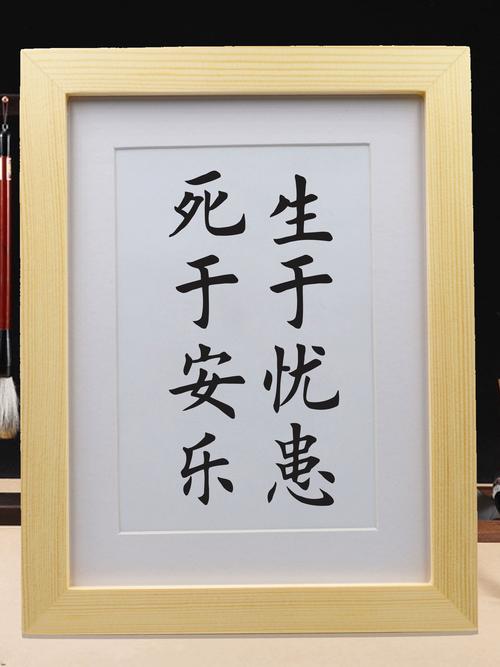 生于忧患
死于安乐